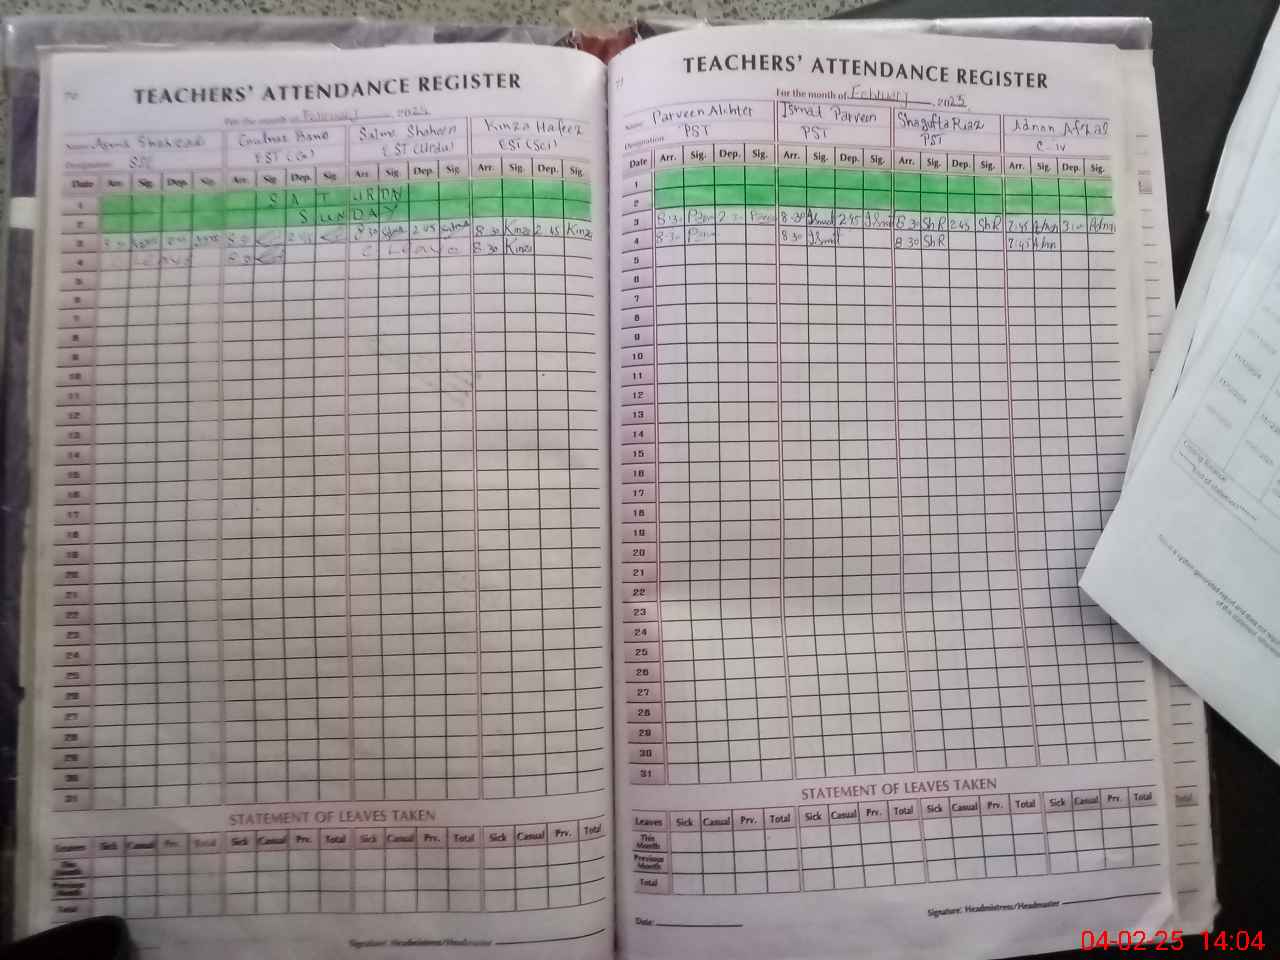 TEACHERS' ATTENDANCE REGISTER
For the month of February 2025
Name Asma Shahzadi Gulnaz Bano Salma Shaheen Kinza Hafeez
Designation SSE EST (G) EST (Urdu) EST (Sci)
Date Arr. Sig. Dep. Sig. Arr. Sig. Dep. Sig. Arr. Sig. Dep. Sig. Arr. Sig. Dep. Sig.
1 SATURDAY
2 SUNDAY
3 8.30 2.45 8.30 2.45 8.30 2.45 8.30 Kinza 2.45 Kinza
4 C Leave 8.30 C Leave 8.30 Kinza
5
6
7
8
9
10
11
12
13
14
15
16
17
18
19
20
21
22
23
24
25
26
27
28
29
30
31
STATEMENT OF LEAVES TAKEN
Leaves Sick Casual Prv. Total Sick Casual Prv. Total Sick Casual Prv. Total Sick Casual Prv. Total
This Month
Previous Month
Total
Signature: Headmistress/Headmaster
71
TEACHERS' ATTENDANCE REGISTER
For the month of February, 2025
Name Parveen Akhter Ismat Parveen Shagufta Riaz Adnan Afzal
Designation PST PST PST C-IV
Date Arr. Sig. Dep. Sig. Arr. Sig. Dep. Sig. Arr. Sig. Dep. Sig. Arr. Sig. Dep. Sig.
1
2
3 8.30 8.30 Ismat 2.45 Ismat 8.30 ShR 2.45 ShR 7.45 Adnan 3.10 Adnan
4 8.30 8.30 Ismat 8.30 ShR 7.45 Adnan
5
6
7
8
9
10
11
12
13
14
15
16
17
18
19
20
21
22
23
24
25
26
27
28
29
30
31
STATEMENT OF LEAVES TAKEN
Leaves Sick Casual Prv. Total Sick Casual Prv. Total Sick Casual Prv. Total Sick Casual Prv. Total
This Month
Previous Month
Total
Date: Signature: Headmistress/Headmaster
Closing Balance
04-02-25 14:04